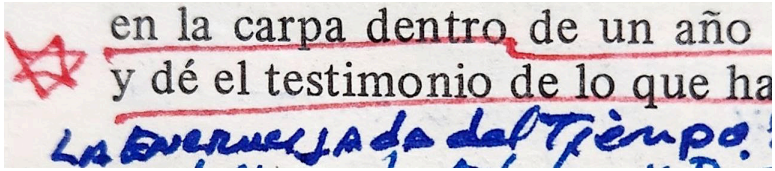 en la carpa dentro de un año
y dé el testimonio de lo que ha
LA ENCRUCIJADA del Tiempo.